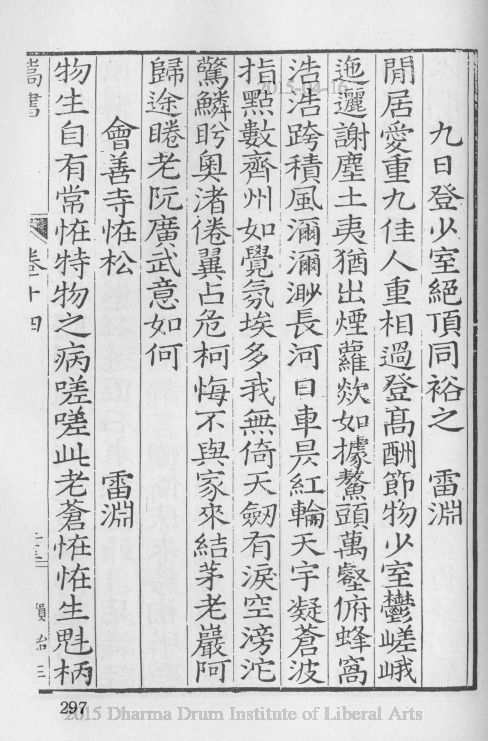 九日登少室絕頂同裕之　雷淵
閒居愛重九佳人重相過登高酬節物少室鬱嵯峨
迤邐謝塵土夷猶出煙蘿欻如據鰲頭萬壑俯蜂窩
浩浩跨積風瀰瀰渺長河日車昃紅輪天宇凝蒼波
指點數齊州如覺氛埃多我無倚天劒有淚空滂沱
驚鱗盻奧渚倦翼占危柯悔不與家來結茅老巖阿
歸途睠老阮廣武意如何
會善寺恠松　雷淵
物生自有常恠特物之病嗟嗟此老蒼恠恠生魁柄
嵩書
卷十四
297
2015-04-16
2015 Dharma Drum Institute of Liberal Arts